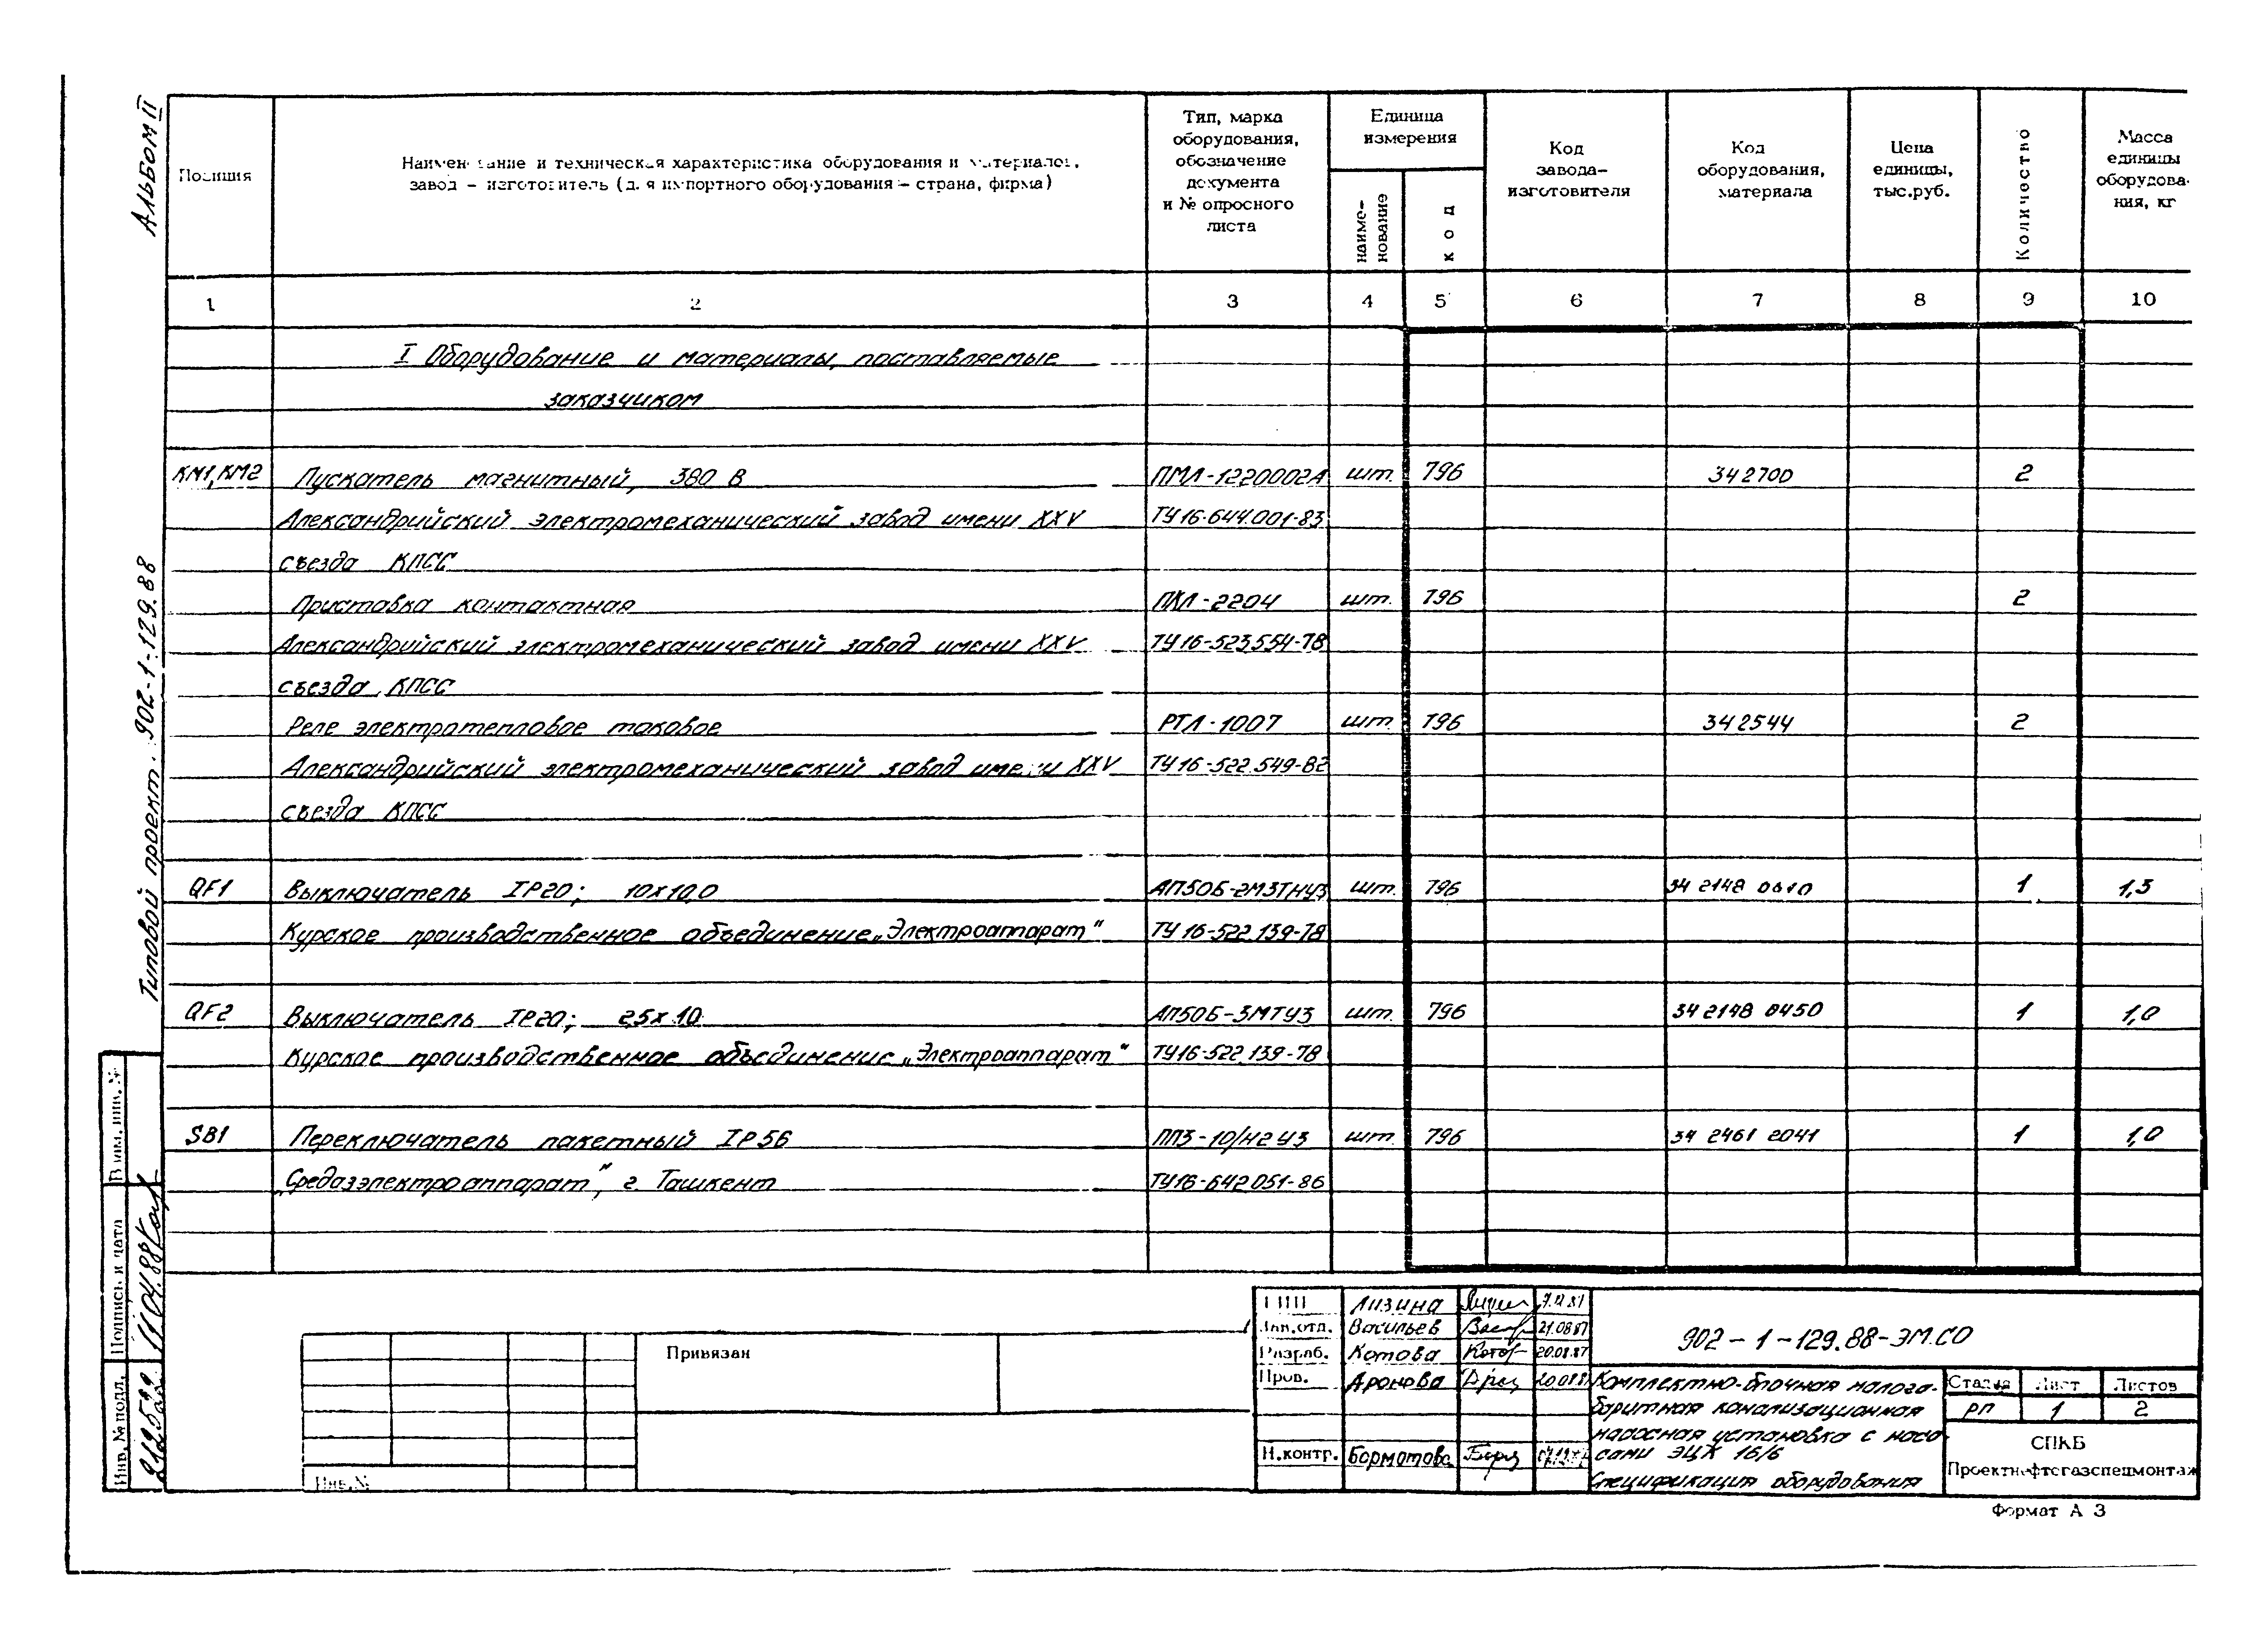 АЛЬБОМ II
Типовой проект. 902-1-129.88
Позиция
Наименование и техническая характеристика оборудования и материалов,
завод – изготовитель (для импортного оборудования – страна, фирма)
Тип, марка
оборудования,
обозначение
документа
и № опросного
листа
Единица
измерения
наиме-
нование
код
Код
завода-
изготовителя
Код
оборудования,
материала
Цена
единицы,
тыс.руб.
Количество
Масса
единицы
оборудова-
ния, кг
1 2 3 4 5 6 7 8 9 10
I Оборудование и материалы, поставляемые
заказчиком
КМ1, КМ2 Пускатель магнитный, 380 В ПМЛ-1220002А шт. 796 342700 2
Александрийский электромеханический завод имени XXV ТУ16-644.001-83
съезда КПСС
Приставка контактная ПКЛ-2204 шт. 796 2
Александрийский электромеханический завод имени XXV ТУ16-523.554-78
съезда КПСС
Реле электротепловое токовое РТЛ-1007 шт. 796 342544 2
Александрийский электромеханический завод имени XXV ТУ16-522.549-82
съезда КПСС
QF1 Выключатель IP20; 10х10,0 АП50Б-2МЗТНУ3 шт. 796 34 2148 0610 1 1,3
Курское производственное объединение „Электроаппарат" ТУ16-522.139-78
QF2 Выключатель IP20; 25х10 АП50Б-3МТУ3 шт. 796 34 2148 0450 1 1,0
Курское производственное объединение „Электроаппарат" ТУ16-522.139-78
SB1 Переключатель пакетный IP56 ПП3-10/Н2 У3 шт. 796 34 2461 2041 1 1,0
„Средазэлектроаппарат", г. Ташкент ТУ16-642.051-86
Взам. инв. №
Подпись и дата 11.04.88
Инв. № подл.
Привязан
Инв. №
ГИП Лизина
Зав.отд. Васильев 21.08.87
Разраб. Котова 20.08.87
Пров. Аронова
Н.контр. Борматова
902-1-129.88-ЭМ.СО
Комплектно-блочная малога-
баритная канализационная
насосная установка с насо-
сами ЭЦК 16/6
Спецификация оборудования
Стадия Лист Листов
РП 1 2
СПКБ
Проектнефтегазспецмонтаж
Формат А 3